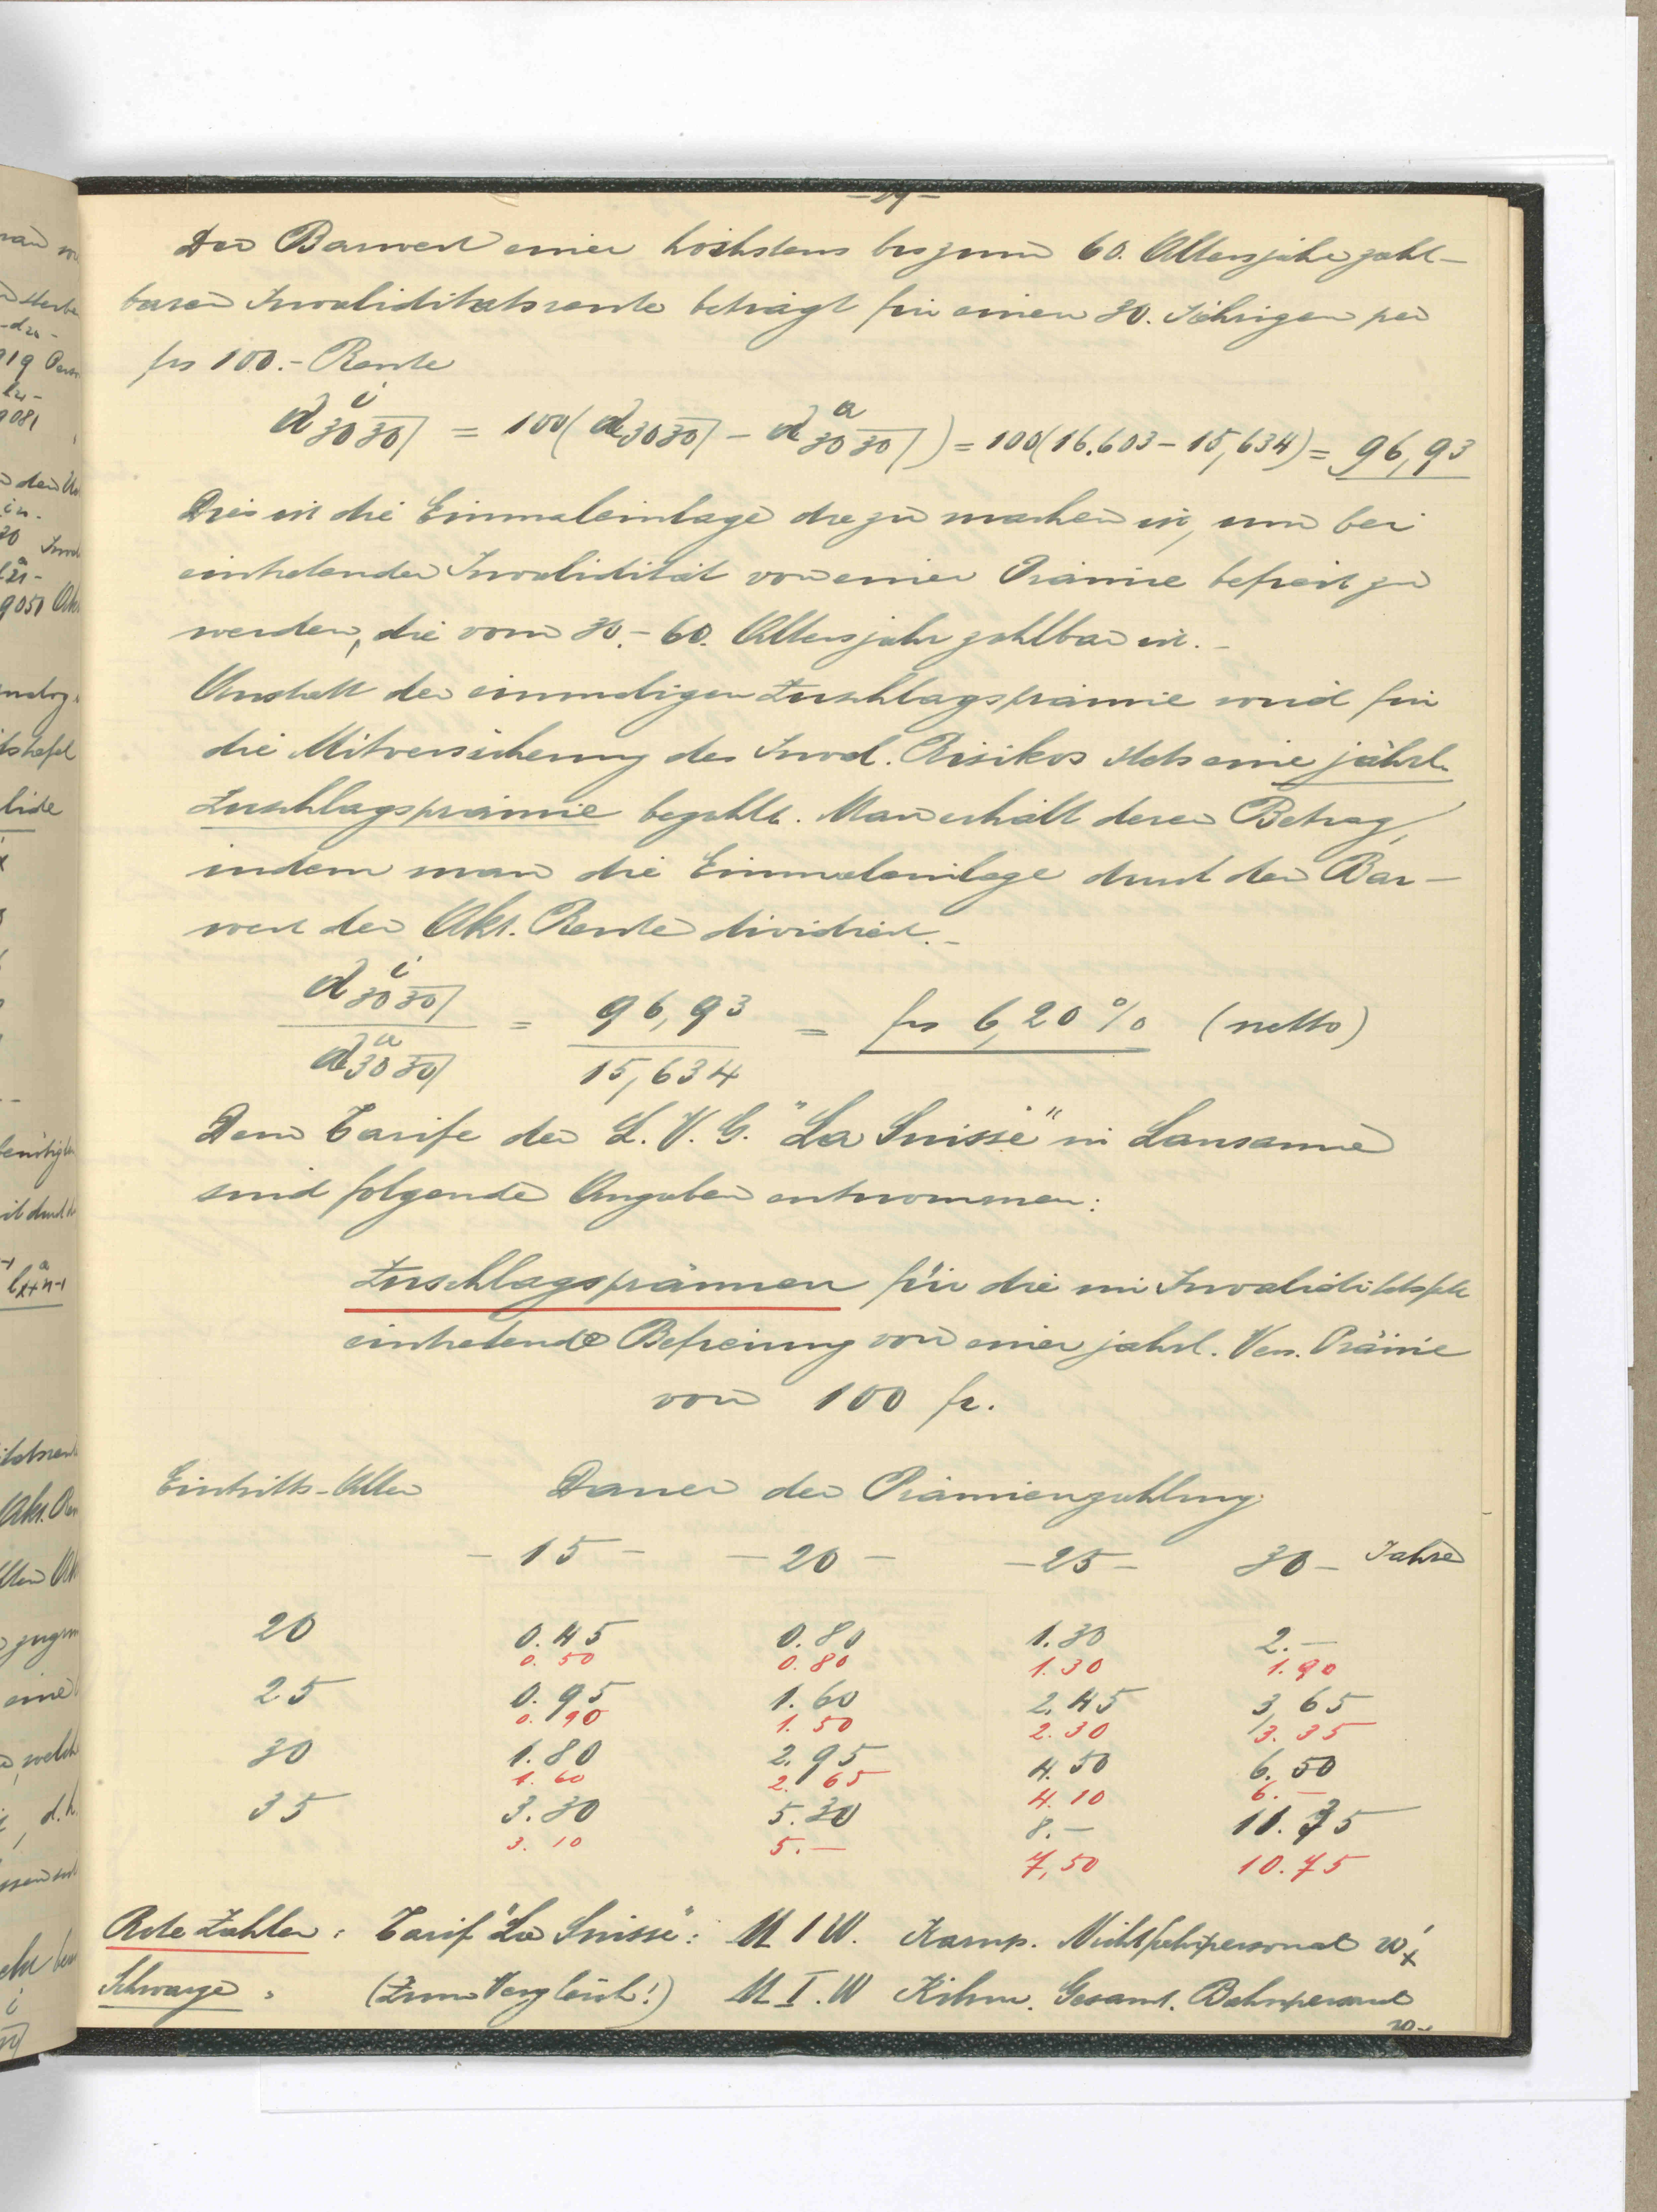 Der Barwert einer höchstens bis zum 60. Altersjahr zahl-
baren Invaliditätsrente beträgt für einen 30. Jährigen per
frs 100.- Rente
a^i 30 30⌉ = 100(a 30 30⌉ - a^a 30 30⌉) = 100(16.603 - 15,634) = 96,93
Dies ist die Einmaleinlage die zu machen ist, um bei
eintretender Invalidität von einer Prämie befreit zu
werden, die vom 30.-60. Altersjahr zahlbar ist.-
Anstatt der einmaligen Zuschlagsprämie wird für
die Mitversicherung des Inval. Risikos stets eine jährl.
Zuschlagsprämie bezahlt. Man erhält deren Betrag,
indem man die Einmaleinlage durch den Bar-
wert der Akt. Rente dividiert.-
a^i 30 30⌉ / a^a 30 30⌉ = 96,93 / 15,634 = frs 6,20 % (netto)
Dem Tarife der L.V.G. "La Suisse" in Lausanne
sind folgende Angaben entnommen:
Zuschlagsprämien für die im Invaliditätsfalle
eintretende Befreiung von einer jährl. Vers. Prämie
von 100 fr.
Eintritts-Alter Dauer der Prämienzahlung
- 15 - - 20 - - 25 - 30 - Jahre
20 0.45 0.80 1.30 2.-
0.50 0.80 1.30 1.90
25 0.95 1.60 2.45 3,65
0.90 1.50 2.30 3.35
30 1.80 2.95 4.50 6.50
1.60 2.65 4.10 6.-
35 3.30 5.30 8.- 11.35
3.10 5.- 7,50 10.75
Rote Zahlen: Tarif "La Suisse": M I W. Kamp. Nichtfahrpersonal
Schwarze " (Zum Vergleich!) M I. W Kihm. Gesamt. Bahnpersonal